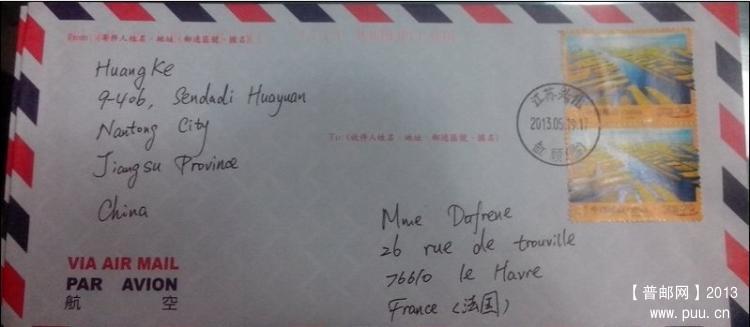 From:
(寄件人姓名、地址、郵遞區號、國名)
Huang Ke
9-406, Sendadi Huayuan
Nantong City
Jiangsu Province
China
VIA AIR MAIL
PAR AVION
航 空
江苏
2013.05.19.17
To:(收件人姓名、地址、郵遞區號、國名)
Mme Dofrene
26 rue de trouville
76610 le Havre
France (法国)
【普邮网】2013
www.puu.cn